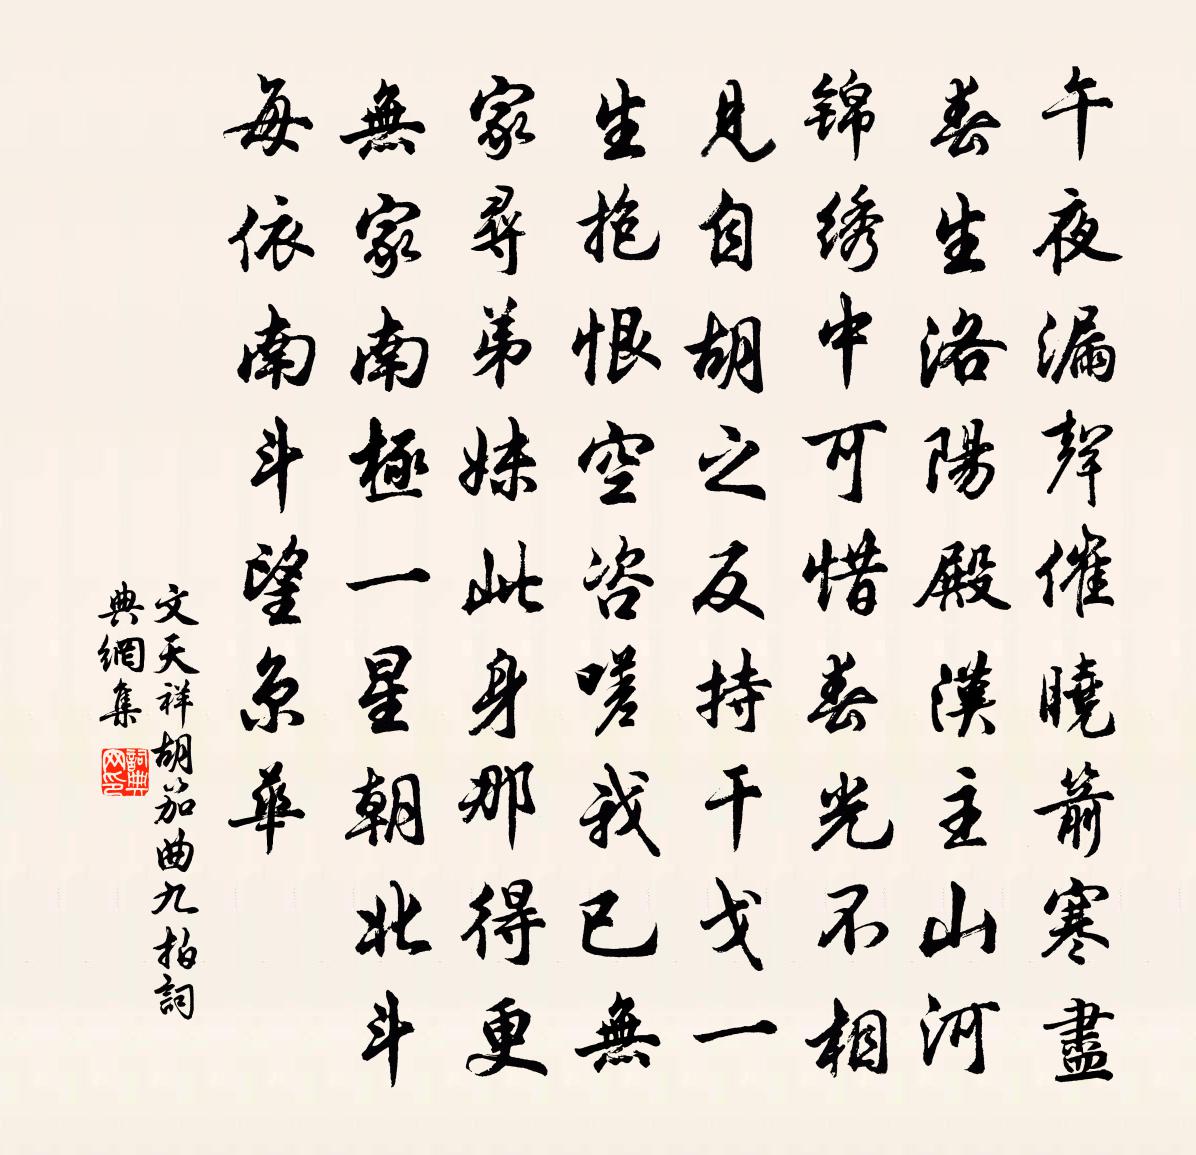 午夜漏聲催曉箭寒盡
春生洛陽殿漢主山河
锦绣中可惜春光不相
見自胡之反持干戈一
生抱恨空咨嗟我已無
家尋弟妹此身那得更
無家南極一星朝北斗
每依南斗望京華
文天祥胡笳曲九拍詞
典網集
詞典
网印